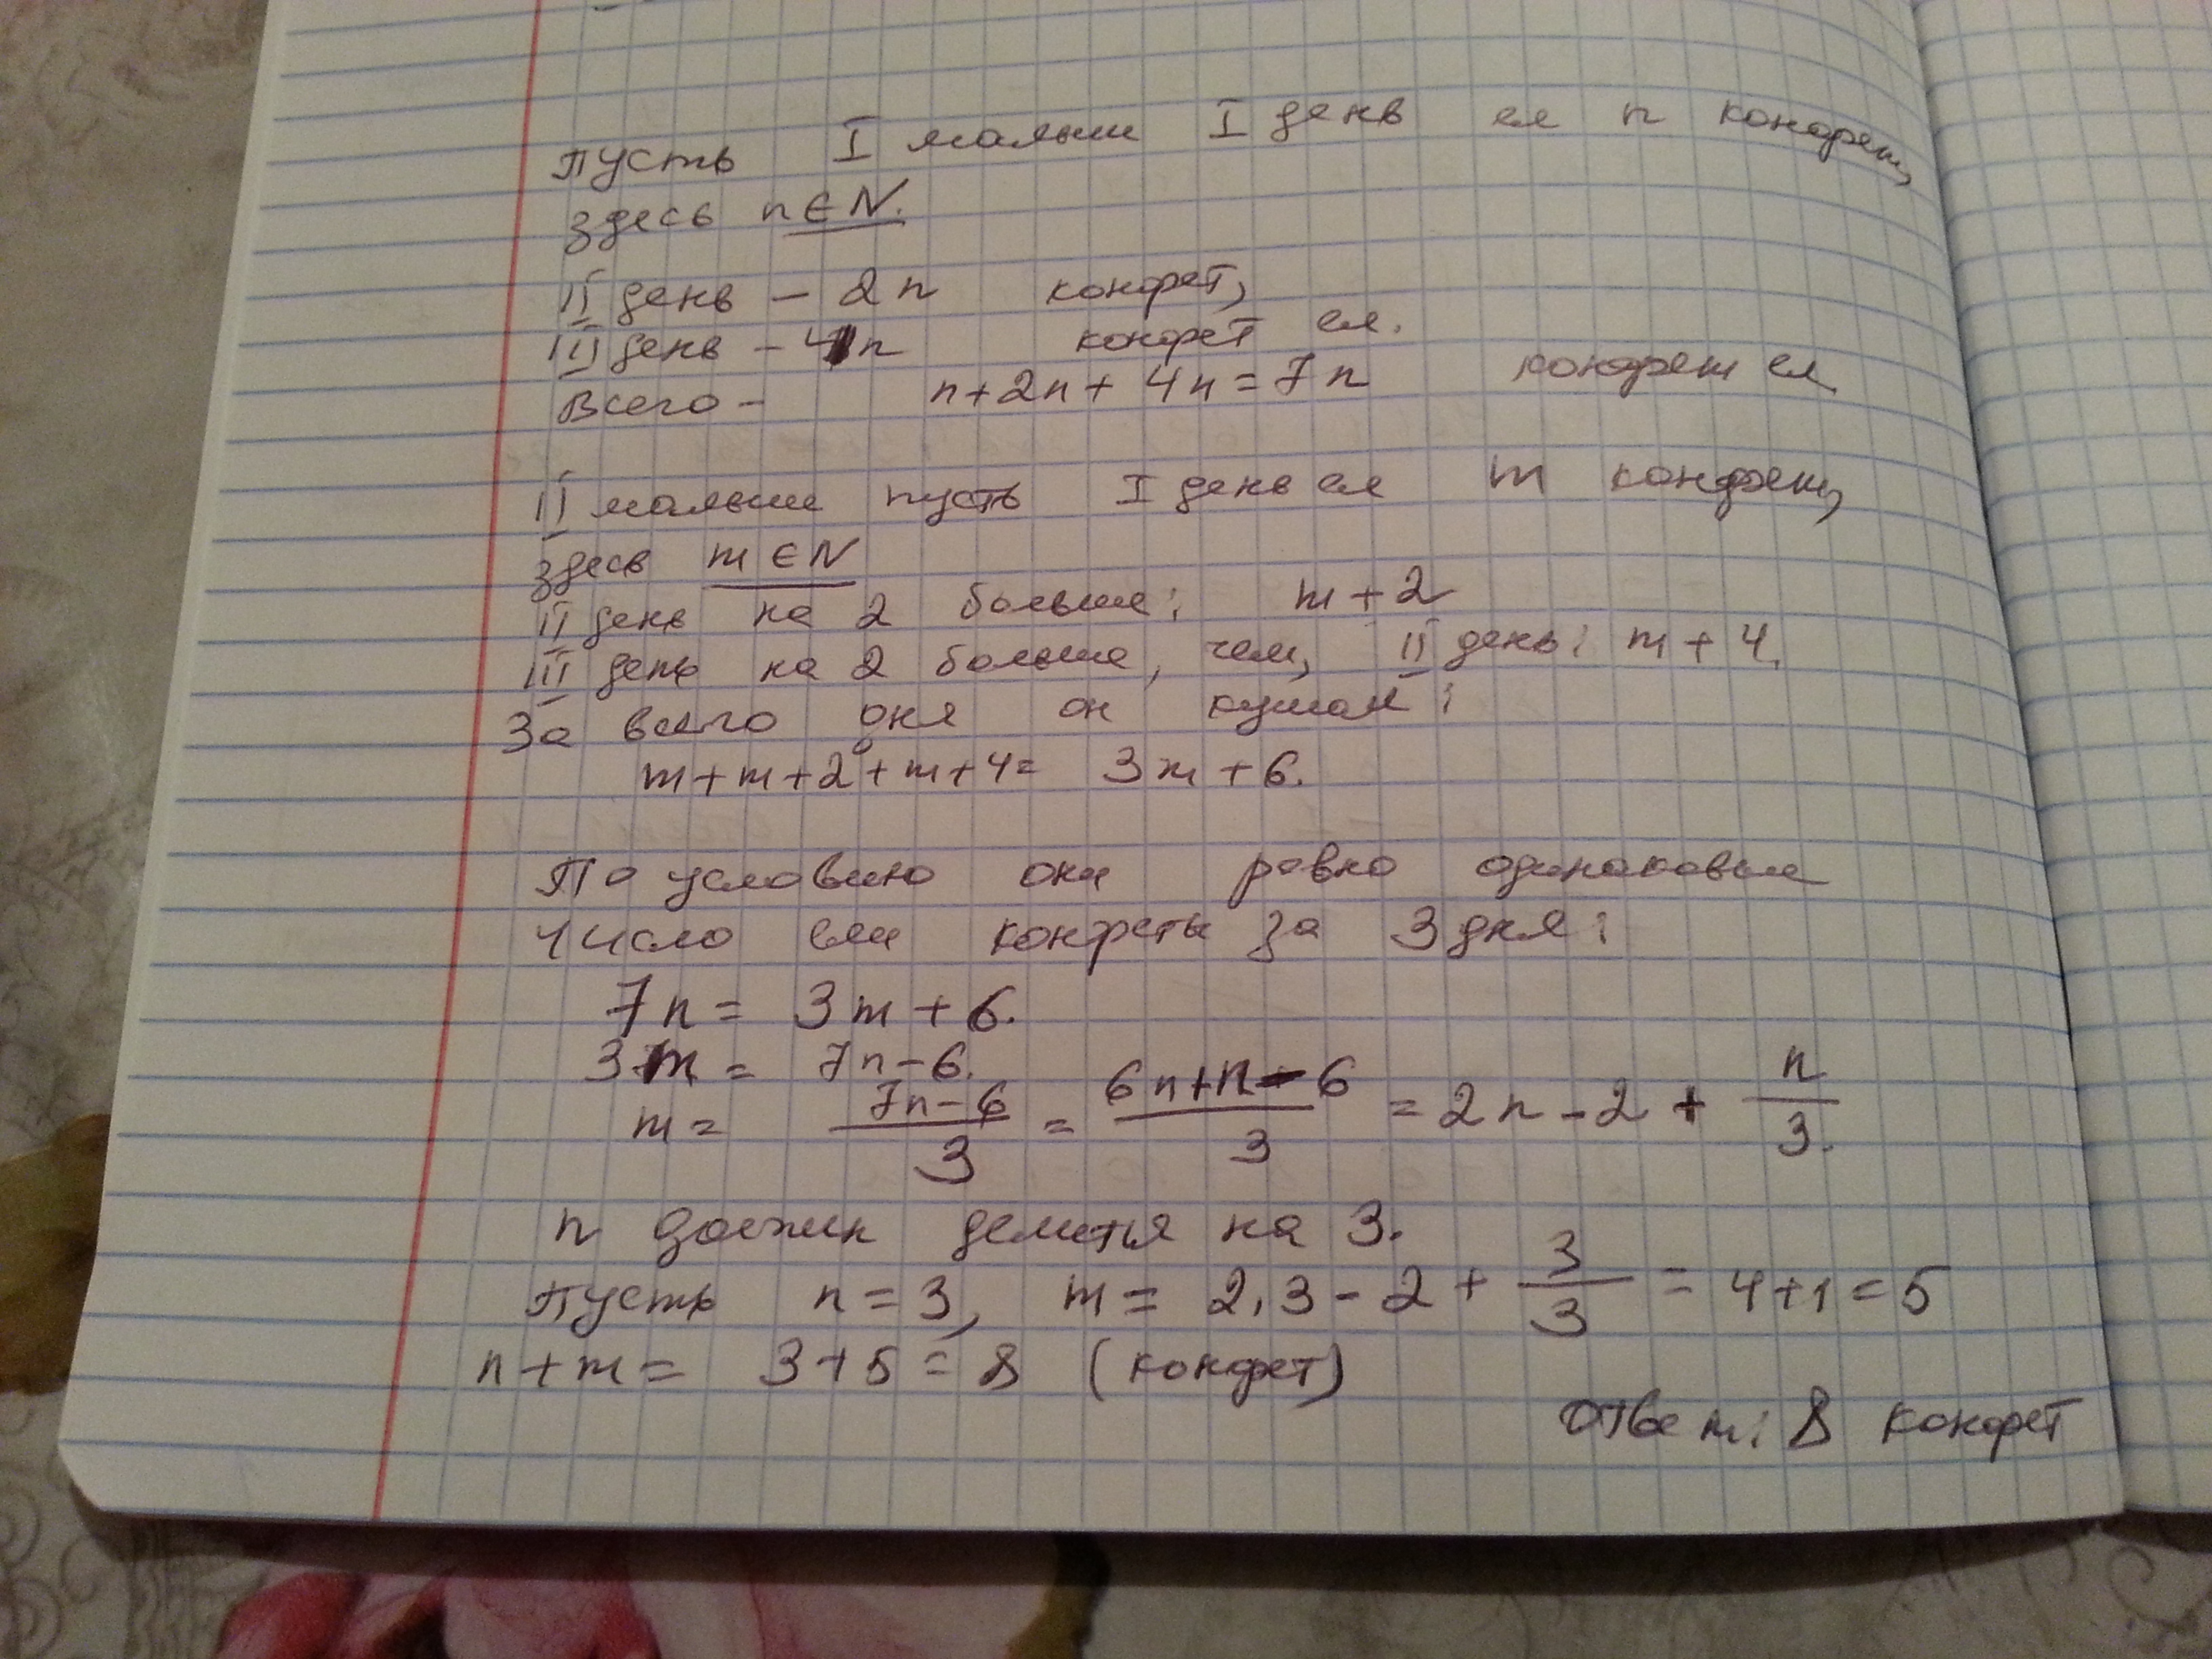 Пусть I малыш I день ел n конфет,
здесь n ∈ N.
II день – 2n конфет,
III день – 4n конфет ел.
Всего – n+2n+4n=7n конфет ел.
II малыш пусть I день ел m конфет,
здесь m ∈ N
II день на 2 больше: m+2
III день на 2 больше, чем, II день: m+4.
За всего дня он кушал:
m+m+2+m+4= 3m+6.
По условию они ровно одинаковые
число ели конфеты за 3 дня:
7n = 3m+6.
3m = 7n-6.
m = \frac{7n-6}{3} = \frac{6n+n-6}{3} = 2n-2+\frac{n}{3}.
n должен делится на 3.
Пусть n=3, m= 2·3-2+\frac{3}{3}=4+1=5
n+m= 3+5=8 (конфет)
Ответ: 8 конфет